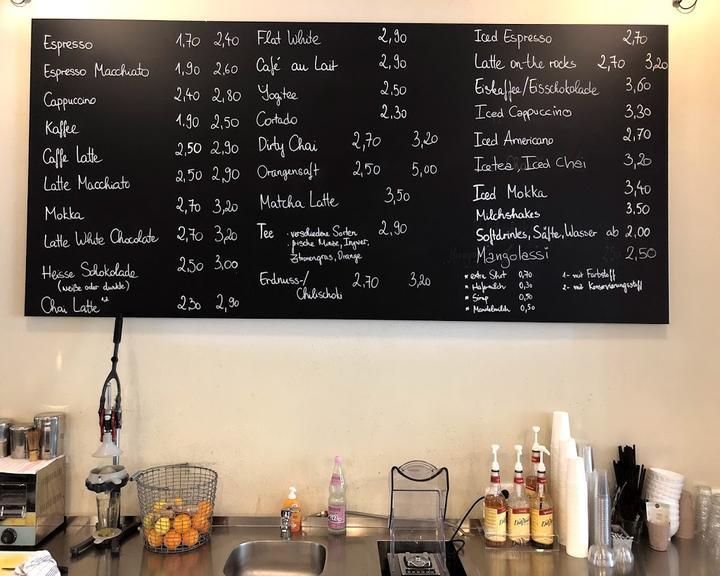 Espresso 1,70 2,40
Espresso Macchiato 1,90 2,60
Cappuccino 2,40 2,80
Kaffee 1.90 2,50
Caffe Latte 2,50 2,90
Latte Macchiato 2,50 2,90
Mokka 2,70 3,20
Latte White Chocolate 2,70 3,20
Heisse Schokolade 2,50 3,00
(weiße oder dunkle)
Chai Latte 2,30 2,90
Flat White 2,90
Café au Lait 2,90
Yogitee 2,50
Cortado 2.30
Dirty Chai 2,70 3,20
Orangensaft 2,50 5,00
Matcha Latte 3,50
Tee · verschiedene Sorten 2,90
· frische Minze, Ingwer,
Zitronengras, Orange
Erdnuss-/ 2,70 3,20
Chilischoki
Iced Espresso 2,70
Latte on the rocks 2,70 3,20
Eiskaffee/Eisschokolade 3,60
Iced Cappuccino 3,30
Iced Americano 2,70
Icetea, Iced Chai 3,20
Iced Mokka 3,40
Milchshakes 3.50
Softdrinks, Säfte, Wasser ab 2,00
Mangolassi 2,50
* extra Shot 0,70
* Hafermilch 0,30
* Sirup 0,50
* Mandelmilch 0,50
1- mit Farbstoff
2- mit Konservierungsstoff